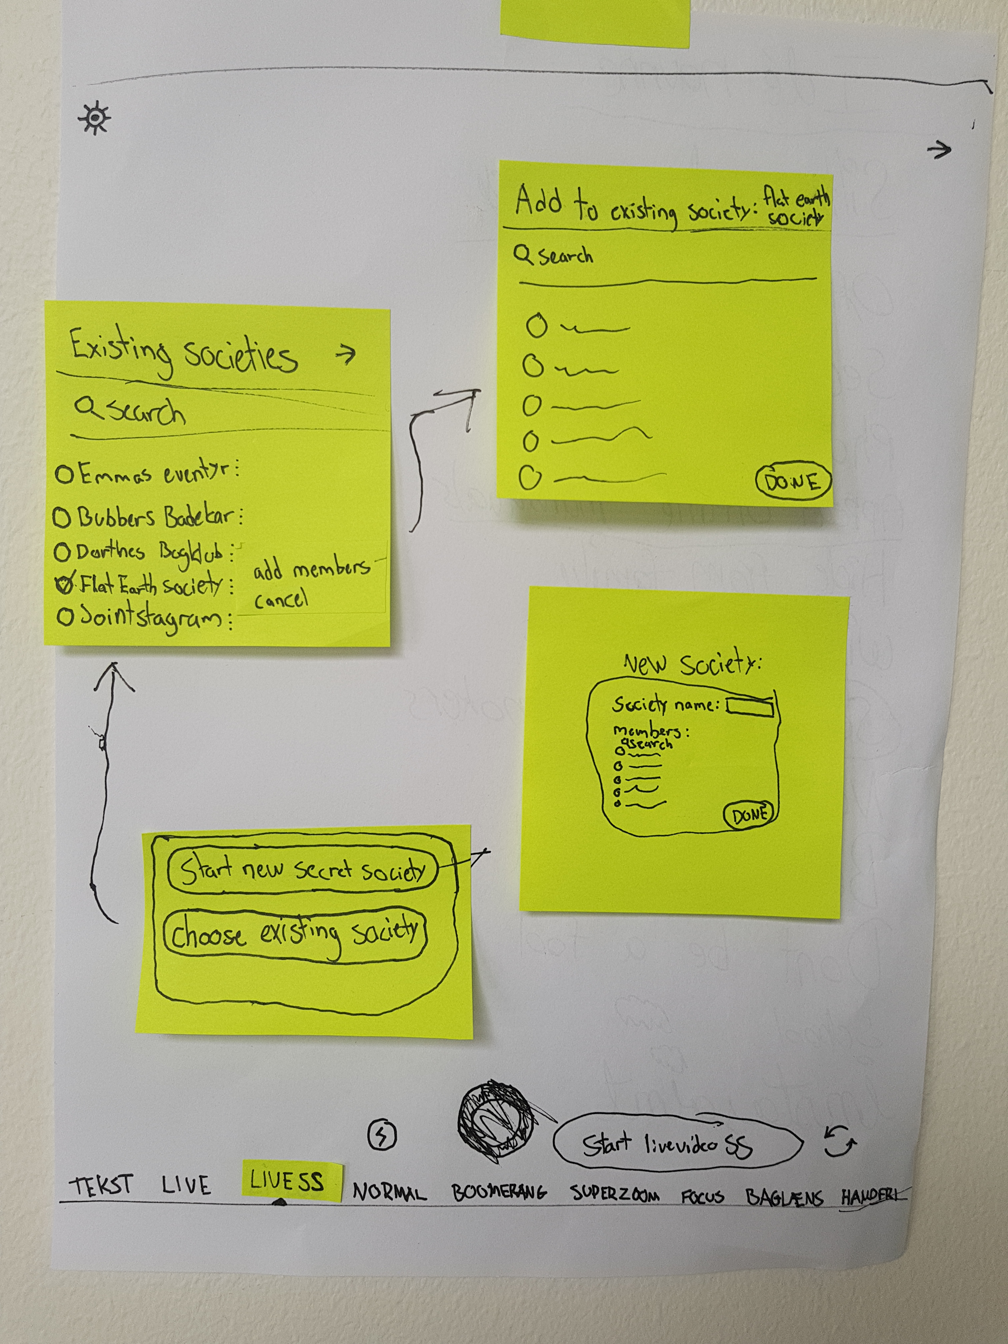 Add to existing society: flat earth
society
search
DONE
Existing societies →
search
Emmas eventyr:
Bubbers Badekar:
Dorthes Bogklub:
Flat Earth society:
Jointstagram:
add members
cancel
New society:
Society name:
members:
search
DONE
Start new secret society
Choose existing society
Start livevideo SS
TEKST LIVE LIVE SS NORMAL BOOMERANG SUPERZOOM FOCUS BAGLÆNS HANDERI